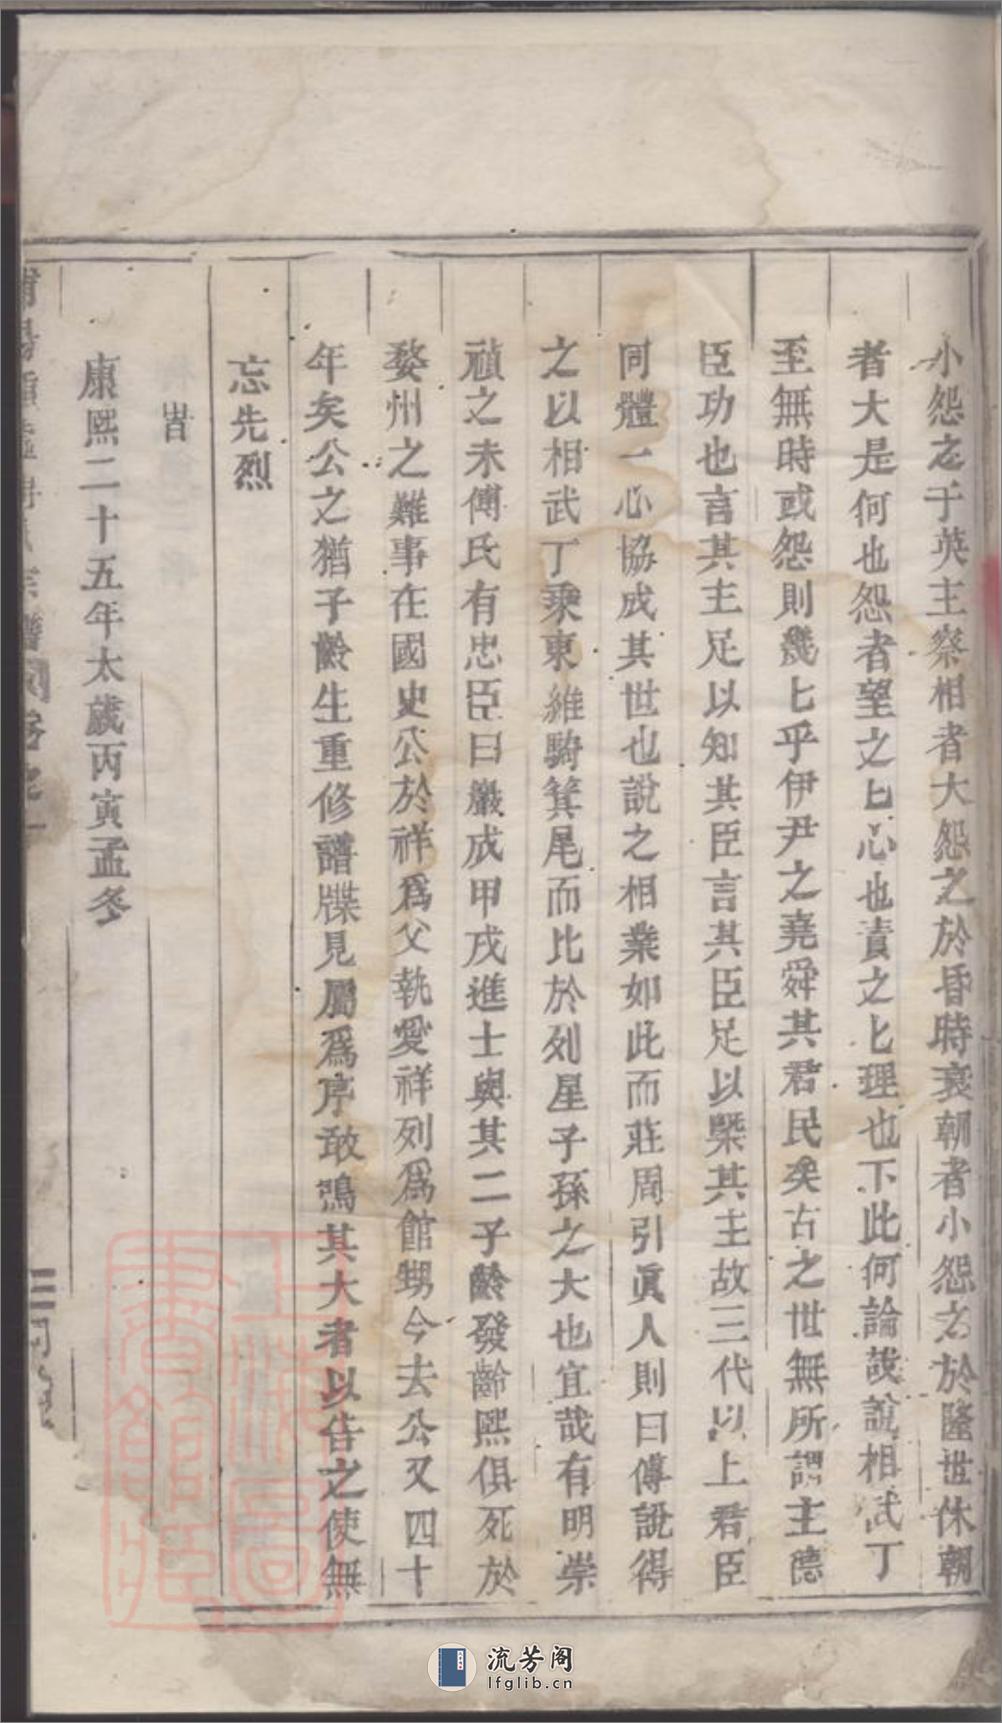 小怨之于英主察相者大怨之於昏時衰朝者小怨之於隆世休朝
者大是何也怨者望之匕心也責之匕理也下此何論哉說相武丁
至無時或怨則幾匕乎伊尹之堯舜其君民矣古之世無所謂主德
臣功也言其主足以知其臣言其臣足以槩其主故三代以上君臣
同體一心協成其世也說之相業如此而莊周引眞人則曰傅說得
之以相武丁乘東維騎箕尾而比於列星子孫之大也宜哉有明崇
禎之末傅氏有忠臣曰巖成甲戌進士與其二子齡發齡熙俱死於
婺州之難事在國史公於祥爲父執愛祥列爲館甥今去公又四十
年矣公之猶子齡生重修譜牒見屬爲序敢鴞其大者以告之使無
忘先烈
旹
康熙二十五年太歲丙寅孟冬
宗譜 卷之一
三
上海圖書館藏
流芳阁
lfglib.cn